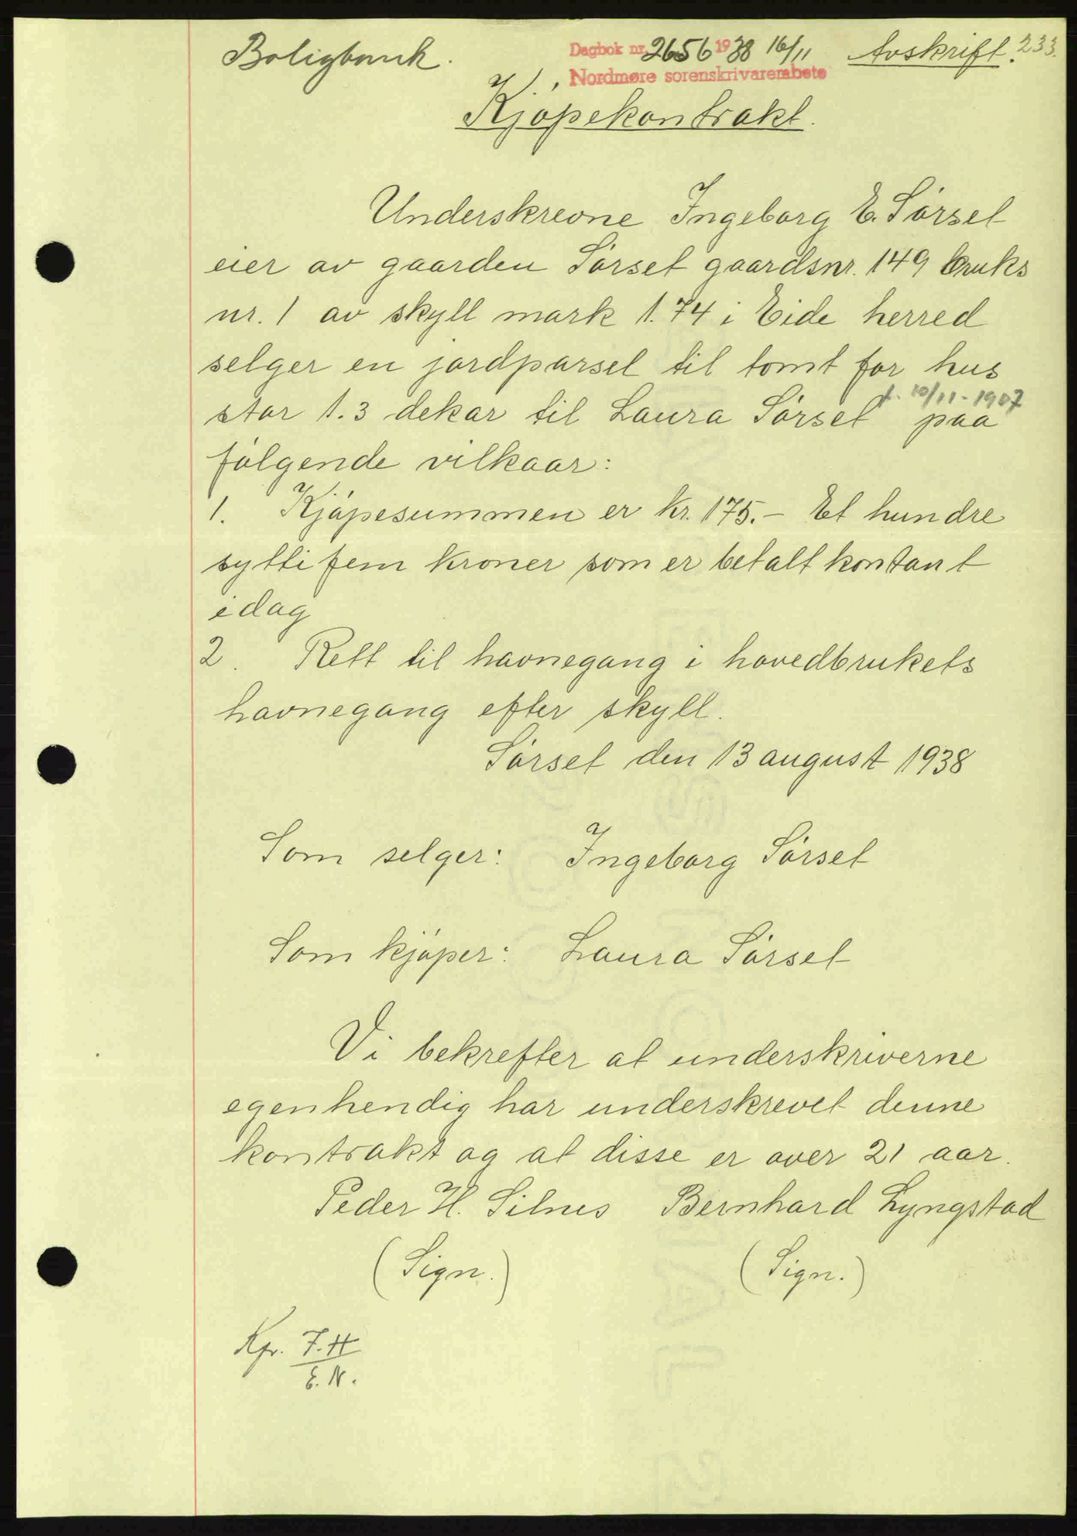 Boligbank.
Dagbok nr. 2656 1938 16/11
Avskrift. 233.
Nordmøre sorenskrivarembete
Kjøpekontrakt.
Underskrevne Ingeborg E. Sørset
eier av gaarden Sørset gaardsnr. 149 bruks
nr. 1 av skyll mark 1.74 i Eide herred
selger en jordparsel til tomt for hus
f. 10/11-1907
stor 1.3 dekar til Laura Sørset paa
følgende vilkaar:
1. Kjøpesummen er kr. 175.- Et hundre
sytti fem kroner som er betalt kontant
idag
2. Rett til havnegang i hovedbrukets
havnegang efter skyll.
Sørset den 13 august 1938
Som selger: Ingeborg Sørset
Som kjøper: Laura Sørset
Vi bekrefter at underskriverne
egenhendig har underskrevet denne
kontrakt og at disse er over 21 aar.
Peder H. Silnes Bernhard Lyngstad
(Sign.) (Sign.)
Kfr. F.H
E.N.